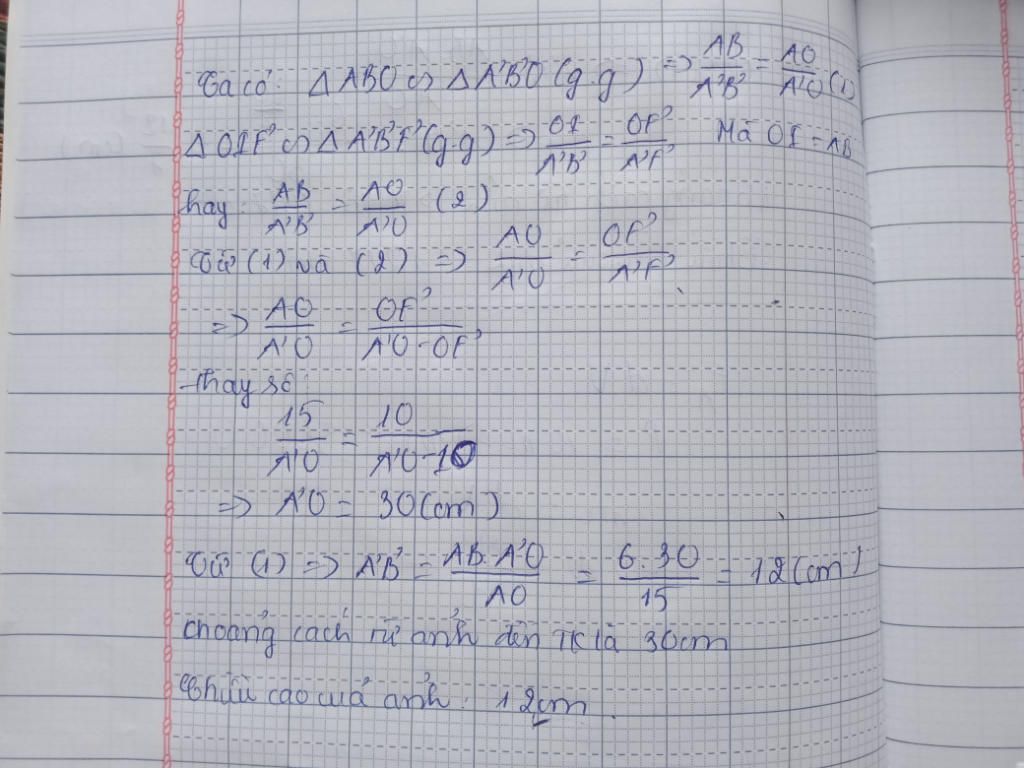 Ta có: Δ ABO ∽ Δ A'B'O (g.g) => AB/A'B' = AO/A'O (1)
Δ OIF' ∽ Δ A'B'F' (g.g) => OI/A'B' = OF'/A'F' Mà OI = AB
hay: AB/A'B' = AO/A'O (2)
Từ (1) và (2) => AO/A'O = OF'/A'F'
=> AO/A'O = OF'/A'O - OF'
thay số:
15/A'O = 10/A'O - 10
=> A'O = 30 (cm)
Từ (1) => A'B' = AB. A'O/AO = 6. 30/15 = 12 (cm)
khoảng cách từ ảnh đến TK là 30cm
Chiều cao của ảnh: 12cm.